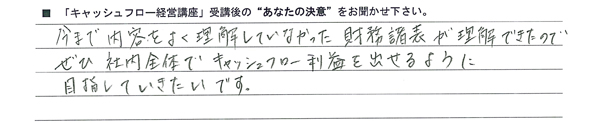 ■ 「キャッシュフロー経営講座」受講後の“あなたの決意”をお聞かせ下さい。
今まで内容をよく理解していなかった財務諸表が理解できたので
ぜひ社内全体でキャッシュフロー利益を出せるように
目指していきたいです。